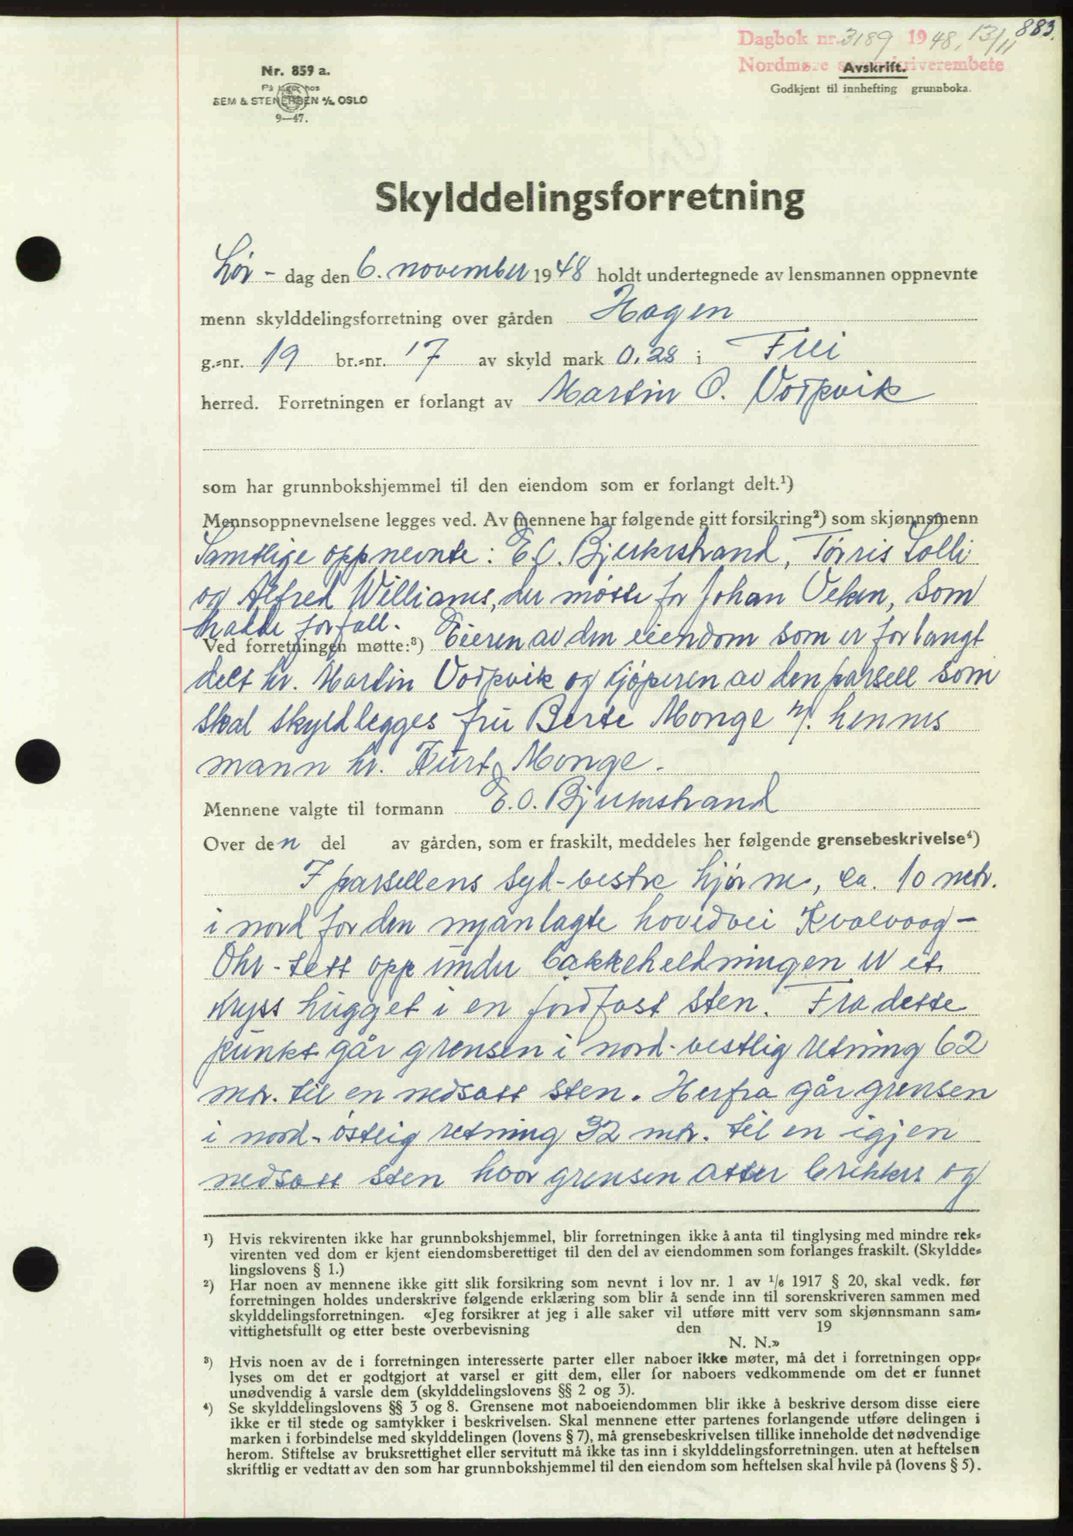 883.
Dagbok nr. 3189 1948, 13/11
Nordmøre sorenskriverembete
Avskrift.
Godkjent til innhefting grunnboka.
Nr. 859 a.
På lager hos
SEM & STENERSEN A/S, OSLO
9—47.
Skylddelingsforretning
Lør - dag den 6. november 1948 holdt undertegnede av lensmannen oppnevnte
menn skylddelingsforretning over gården Hagen
g.-nr. 19 br.-nr. 17 av skyld mark 0,28 i Frei
herred. Forretningen er forlangt av Martin O. Vorpvik
som har grunnbokshjemmel til den eiendom som er forlangt delt.¹)
Mennsoppnevnelsene legges ved. Av mennene har følgende gitt forsikring²) som skjønnsmenn
Samtlige oppnevnte: E.O. Bjerkestrand, Tørris Solli
og Alfred Williams, der møtte for Johan Veken, som
hadde forfall.
Ved forretningen møtte:³) Eieren av den eiendom som er forlangt
delt hr. Martin Vorpvik og kjøperen av den parsell som
skal skyldlegges fru Berte Monge m/. hennes
mann hr. Kurt Monge.
Mennene valgte til formann E.O. Bjerkestrand
Over den del av gården, som er fraskilt, meddeles her følgende grensebeskrivelse⁴)
I parsellens syd-vestre hjørne, ca. 10 metr.
i nord for den nyanlagte hovedvei Kvalvåg –
Ohr - tett opp under bakkehelningen er et
kryss hugget i en jordfast sten. Fra dette
punkt går grensen i nord-vestlig retning 62
mtr. til en nedsatt sten. Herfra går grensen
i nord-østlig retning 32 mtr. til en igjen
nedsatt sten hvor grensen atter brekker og
¹) Hvis rekvirenten ikke har grunnbokshjemmel, blir forretningen ikke å anta til tinglysing med mindre rek-
virenten ved dom er kjent eiendomsberettiget til den del av eiendommen som forlanges fraskilt. (Skyldde-
lingslovens § 1.)
²) Har noen av mennene ikke gitt slik forsikring som nevnt i lov nr. 1 av ¹/₆ 1917 § 20, skal vedk. før
forretningen holdes underskrive følgende erklæring som blir å sende inn til sorenskriveren sammen med
skylddelingsforretningen. «Jeg forsikrer at jeg i alle saker vil utføre mitt verv som skjønnsmann sam-
vittighetsfullt og etter beste overbevisning den 19
N. N.»
³) Hvis noen av de i forretningen interesserte parter eller naboer ikke møter, må det i forretningen opp-
lyses om det er godtgjort at varsel er gitt dem, eller for naboers vedkommende om det er funnet
unødvendig å varsle dem (skylddelingslovens §§ 2 og 3).
⁴) Se skylddelingslovens §§ 3 og 8. Grensene mot naboeiendommen blir ikke å beskrive dersom disse eiere
ikke er til stede og samtykker i beskrivelsen. Skal mennene etter partenes forlangende utføre delingen i
marken i forbindelse med skylddelingen (lovens § 7), må grensebeskrivelsen tillike inneholde det nødvendige
herom. Stiftelse av bruksrettighet eller servitutt må ikke tas inn i skylddelingsforretningen, uten at heftelsen
skriftlig er vedtatt av den som har grunnbokshjemmel til den eiendom som heftelsen skal hvile på (lovens § 5).